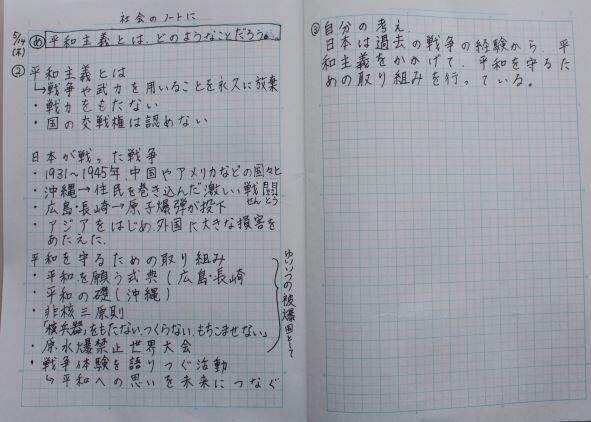 社会のノートに
5/14
(木)
め 平和主義とは、どのようなことだろう。
② 平和主義とは
↳戦争や武力を用いることを永久に放棄
・戦力をもたない
・国の交戦権は認めない
日本が戦った戦争
・1931〜1945年、中国やアメリカなどの国々と
・沖縄→住民を巻き込んだ激しい戦闘
せんとう
・広島・長崎→原子爆弾が投下
・アジアをはじめ、外国に大きな損害を
あたえた。
平和を守るための取り組み
・平和を願う式典(広島・長崎
・平和の礎(沖縄)
・非核三原則
「核兵器」をもたない、つくらない、もちこませない」
・原水爆禁止世界大会
・戦争体験を語りつぐ活動
↳平和への思いを未来につなぐ
ゆいいつの被爆国として
③ 自分の考え
日本は過去の戦争の経験から、平
和主義をかかげて、平和を守るた
めの取り組みを行っている。